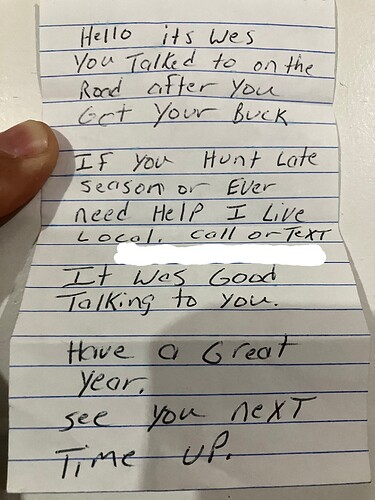 Hello its Wes
You Talked to on the
Road after You
Get Your Buck
If you Hunt Late
season or Ever
need Help I Live
Local. Call or Text
It was Good
Talking to you.
Have a Great
Year.
see you next
Time up.